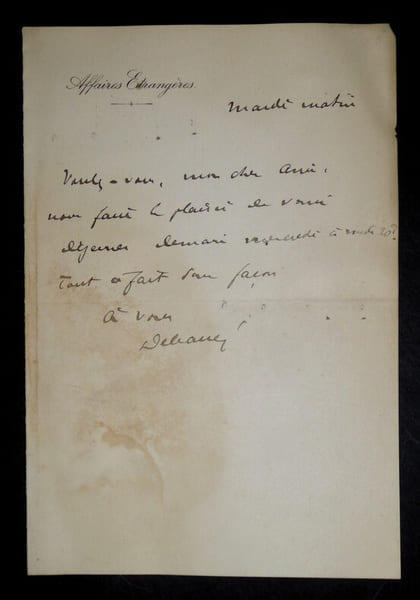 Affaires Etrangères.
Mardi matin
Voulez-vous, mon cher Ami,
nous faire le plaisir de venir
déjeuner demain mercredi à midi
tout à fait sans façon
à vous